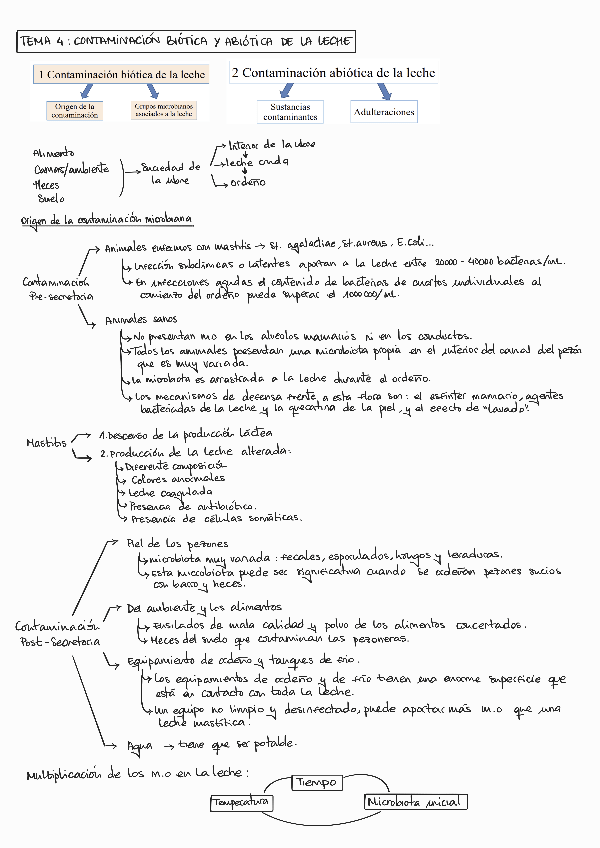 TEMA 4: CONTAMINACIÓN BIÓTICA Y ABIÓTICA DE LA LECHE
1 Contaminación biótica de la leche
Origen de la contaminación
Grupos microbianos asociados a la leche
2 Contaminación abiótica de la leche
Sustancias contaminantes
Adulteraciones
Alimento
Camas/ambiente
Heces
Suelo
Suciedad de la ubre
Interior de la ubre
leche cruda
ordeño
Origen de la contaminación microbiana
Contaminación Pre-secretoria
Animales enfermos con mastitis → St. agalactiae, St. aureus, E. Coli...
Infección subclínicas o latentes aportan a la leche entre 20000 - 40000 bacterias/mL.
En infecciones agudas el contenido de bacterias de cuartos individuales al
comienzo del ordeño puede superar el 1000000/mL.
Animales sanos
No presentan m.o en los alveolos mamarios ni en los conductos.
Todos los animales presentan una microbiota propia en el interior del canal del pezón
que es muy variada.
La microbiota es arrastrada a la leche durante el ordeño.
Los mecanismos de defensa frente a esta flora son: el esfínter mamario, agentes
bactericidas de la leche y la queratina de la piel, y el efecto de "lavado".
Mastitis
1. Descenso de la producción láctea
2. Producción de la leche alterada:
Diferente composición
Colores anormales
Leche coagulada
Presencia de antibiótico.
Presencia de células somáticas.
Contaminación Post-Secretoria
Piel de los pezones
microbiota muy variada: fecales, esporulados, hongos y levaduras.
Esta microbiota puede ser significativa cuando se ordeñan pezones sucios
con barro y heces.
Del ambiente y los alimentos
Ensilados de mala calidad y polvo de los alimentos concertados.
Heces del suelo que contaminan las pezoneras.
Equipamiento de ordeño y tanques de frío.
Los equipamientos de ordeño y de frío tienen una enorme superficie que
está en contacto con toda la leche.
Un equipo no limpio y desinfectado, puede aportar más m.o que una
leche mastítica.
Agua → tiene que ser potable.
Multiplicación de los m.o en la leche:
Tiempo
Temperatura
Microbiota inicial